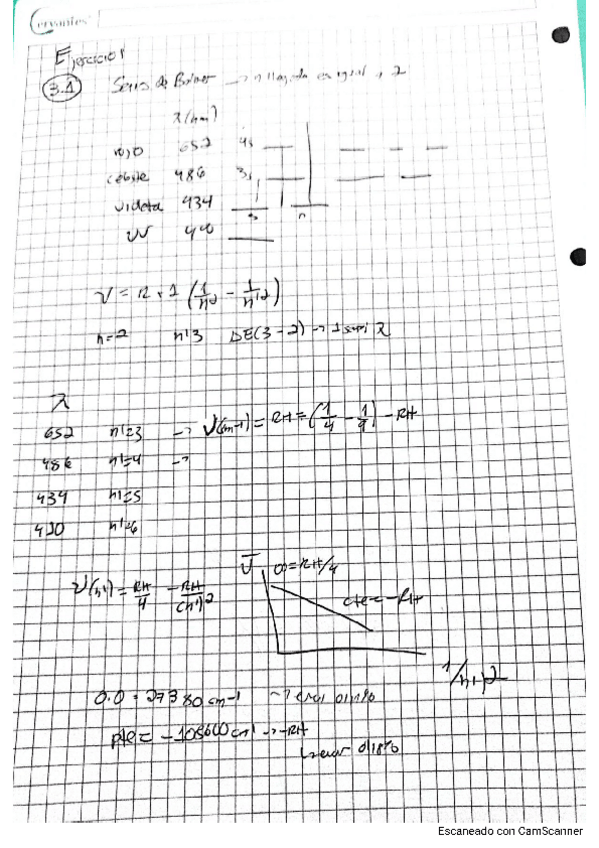 Cervantes
Ejercicio 1
3.1 Series de Balmer → n llegada es igual a 2
λ(nm)
rojo 652
celeste 486
violeta 434
UV
n=2 n'3 ΔE(3-2) →
λ
652 n'=3 → ν(m-1) = RH = (1/4 - 1/9) - RH
486 n'=4 →
434 n'=5
n'=6
ν(n') = RH/4 - RH/(n')2
ν̄ OO=RH/4
cte=-RH
1/n')2
0.0 = 27380 cm-1
pte = -108600 cm-1 → -RH
error 0,18%
Escaneado con CamScanner